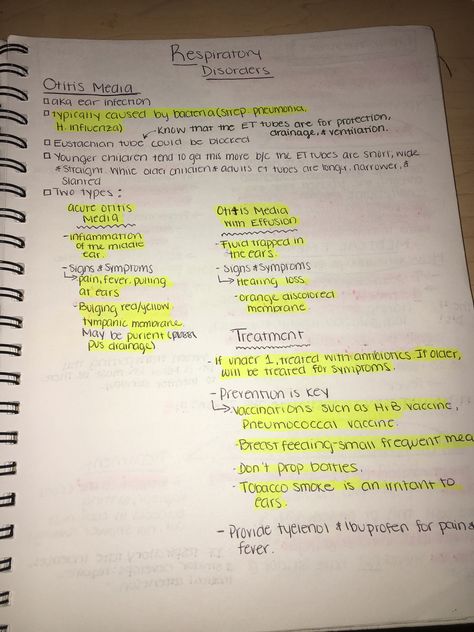 Respiratory
Disorders
Otitis Media
□ aka ear infection
□ typically caused by bacteria (strep pneumonia,
H. influenza)
Know that the ET tubes are for protection,
drainage, & ventilation.
□ Eustachian tube could be blocked
□ Younger children tend to get this more b/c the ET tubes are short, wide
& straight. While older children & adults ET tubes are longer, narrower, &
slanted
□ Two types:
acute otitis
Media
- inflammation
of the middle
ear.
- Signs & Symptoms
↳ pain, fever, pulling
at ears
- Bulging red/yellow
tympanic membrane
May be purlent (
pus drainage)
Otitis Media
with Effusion
- Fluid trapped in
the ears.
- Signs & Symptoms
↳ Hearing loss
- orange discolored
membrane
Treatment
- If under 1, treated with antibiotics If older,
will be treated for symptoms.
- Prevention is key
↳ vaccinations such as HIB vaccine,
Pneumococcal vaccine.
- Breast feeding - small frequent mea
- Don't prop bottles.
- Tobacco smoke is an irritant to
ears.
- Provide tylenol & Ibuprofen for pain &
fever.